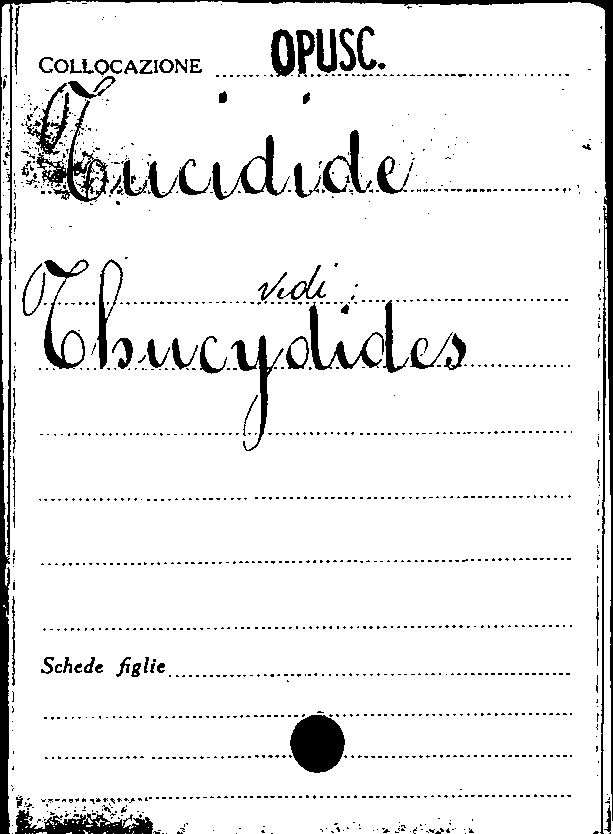 COLLOCAZIONE OPUSC.
Tucidide
vedi:
Thucydides
Schede figlie